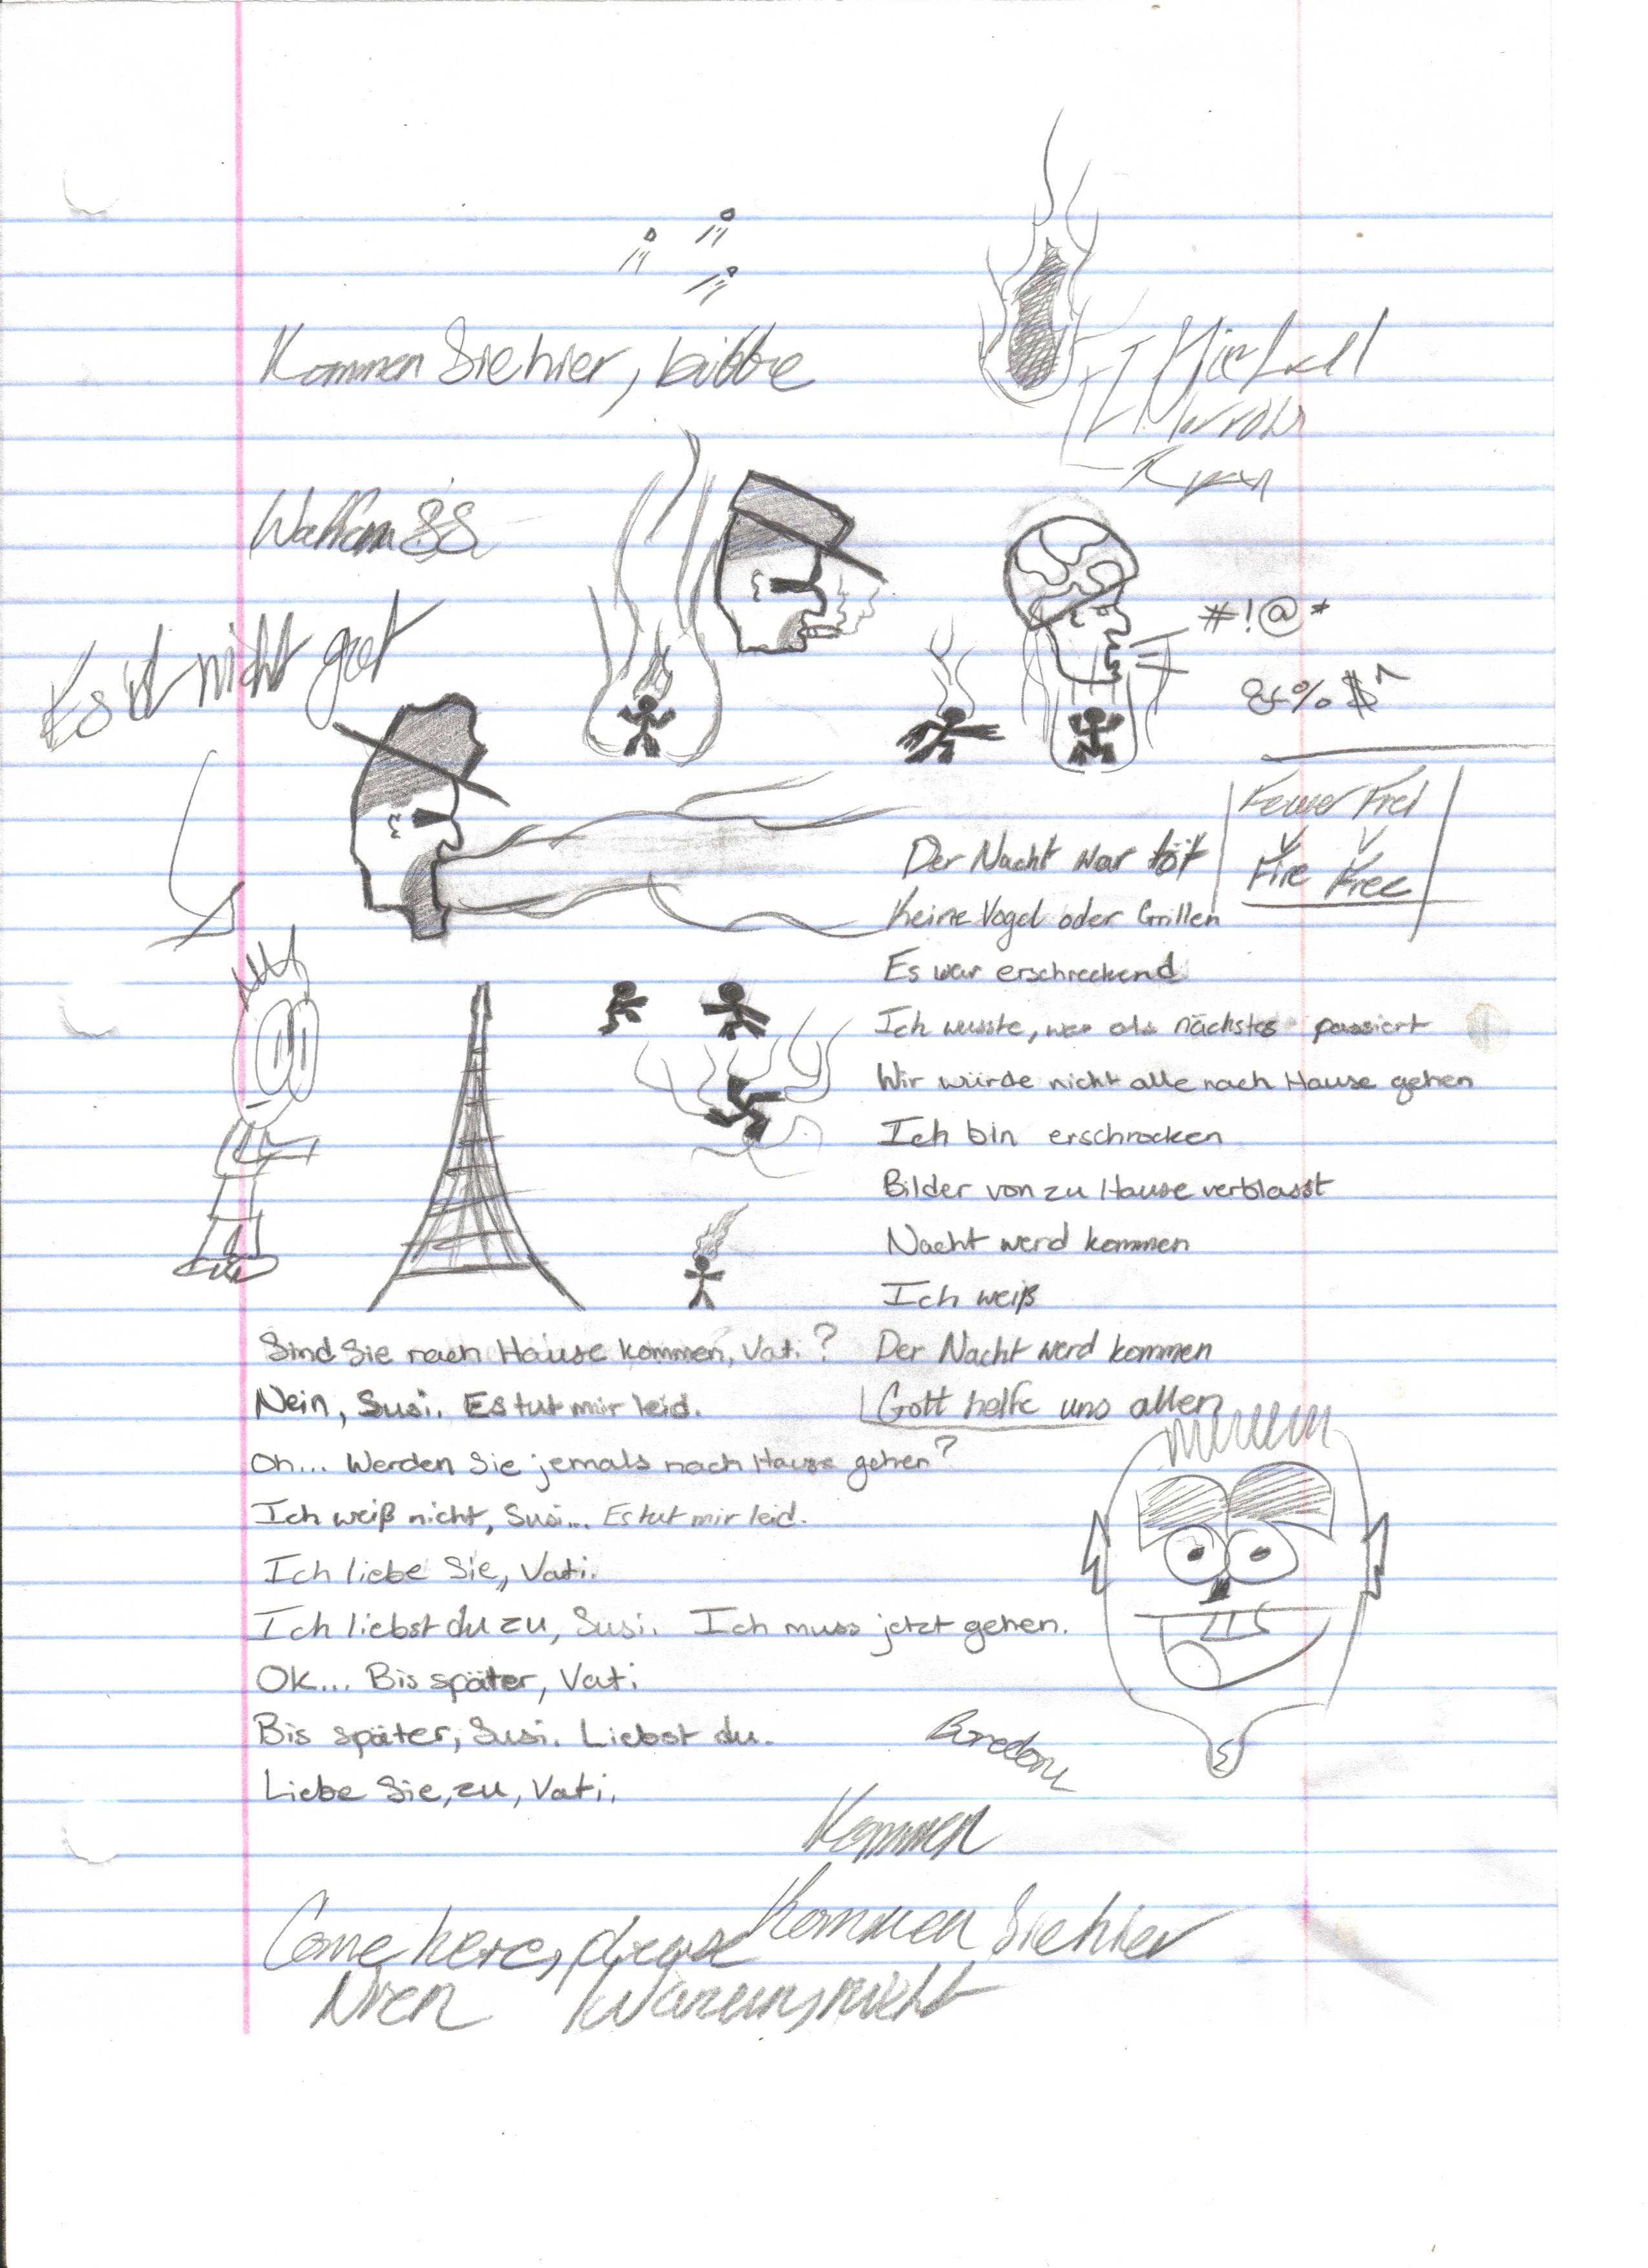 Kommen Sie hier, bitte
Waffen SS
#!@*
Es ist nicht gut
&%$^
Feuer Frei
Fire Free
Der Nacht war töt
Keine Vogel oder Grillen
Es war erschreckend
Ich wusste, was als nächstes passiert
Wir würde nicht alle nach Hause gehen
Ich bin erschrocken
Bilder von zu Hause verblasst
Nacht werd kommen
Ich weiß
Der Nacht werd kommen
Gott helfe uns allen
Sind Sie nach Hause kommen, Vati?
Nein, Susi. Es tut mir leid.
Oh... Werden Sie jemals nach Hause gehen?
Ich weiß nicht, Susi... Es tut mir leid.
Ich liebe Sie, Vati.
Ich liebst du zu, Susi. Ich muss jetzt gehen.
OK... Bis später, Vati
Bis später, Susi. Liebst du.
Liebe Sie, zu, Vati.
Boredom
Kommen
Kommen Sie hier
Come here, please
Warum, nicht